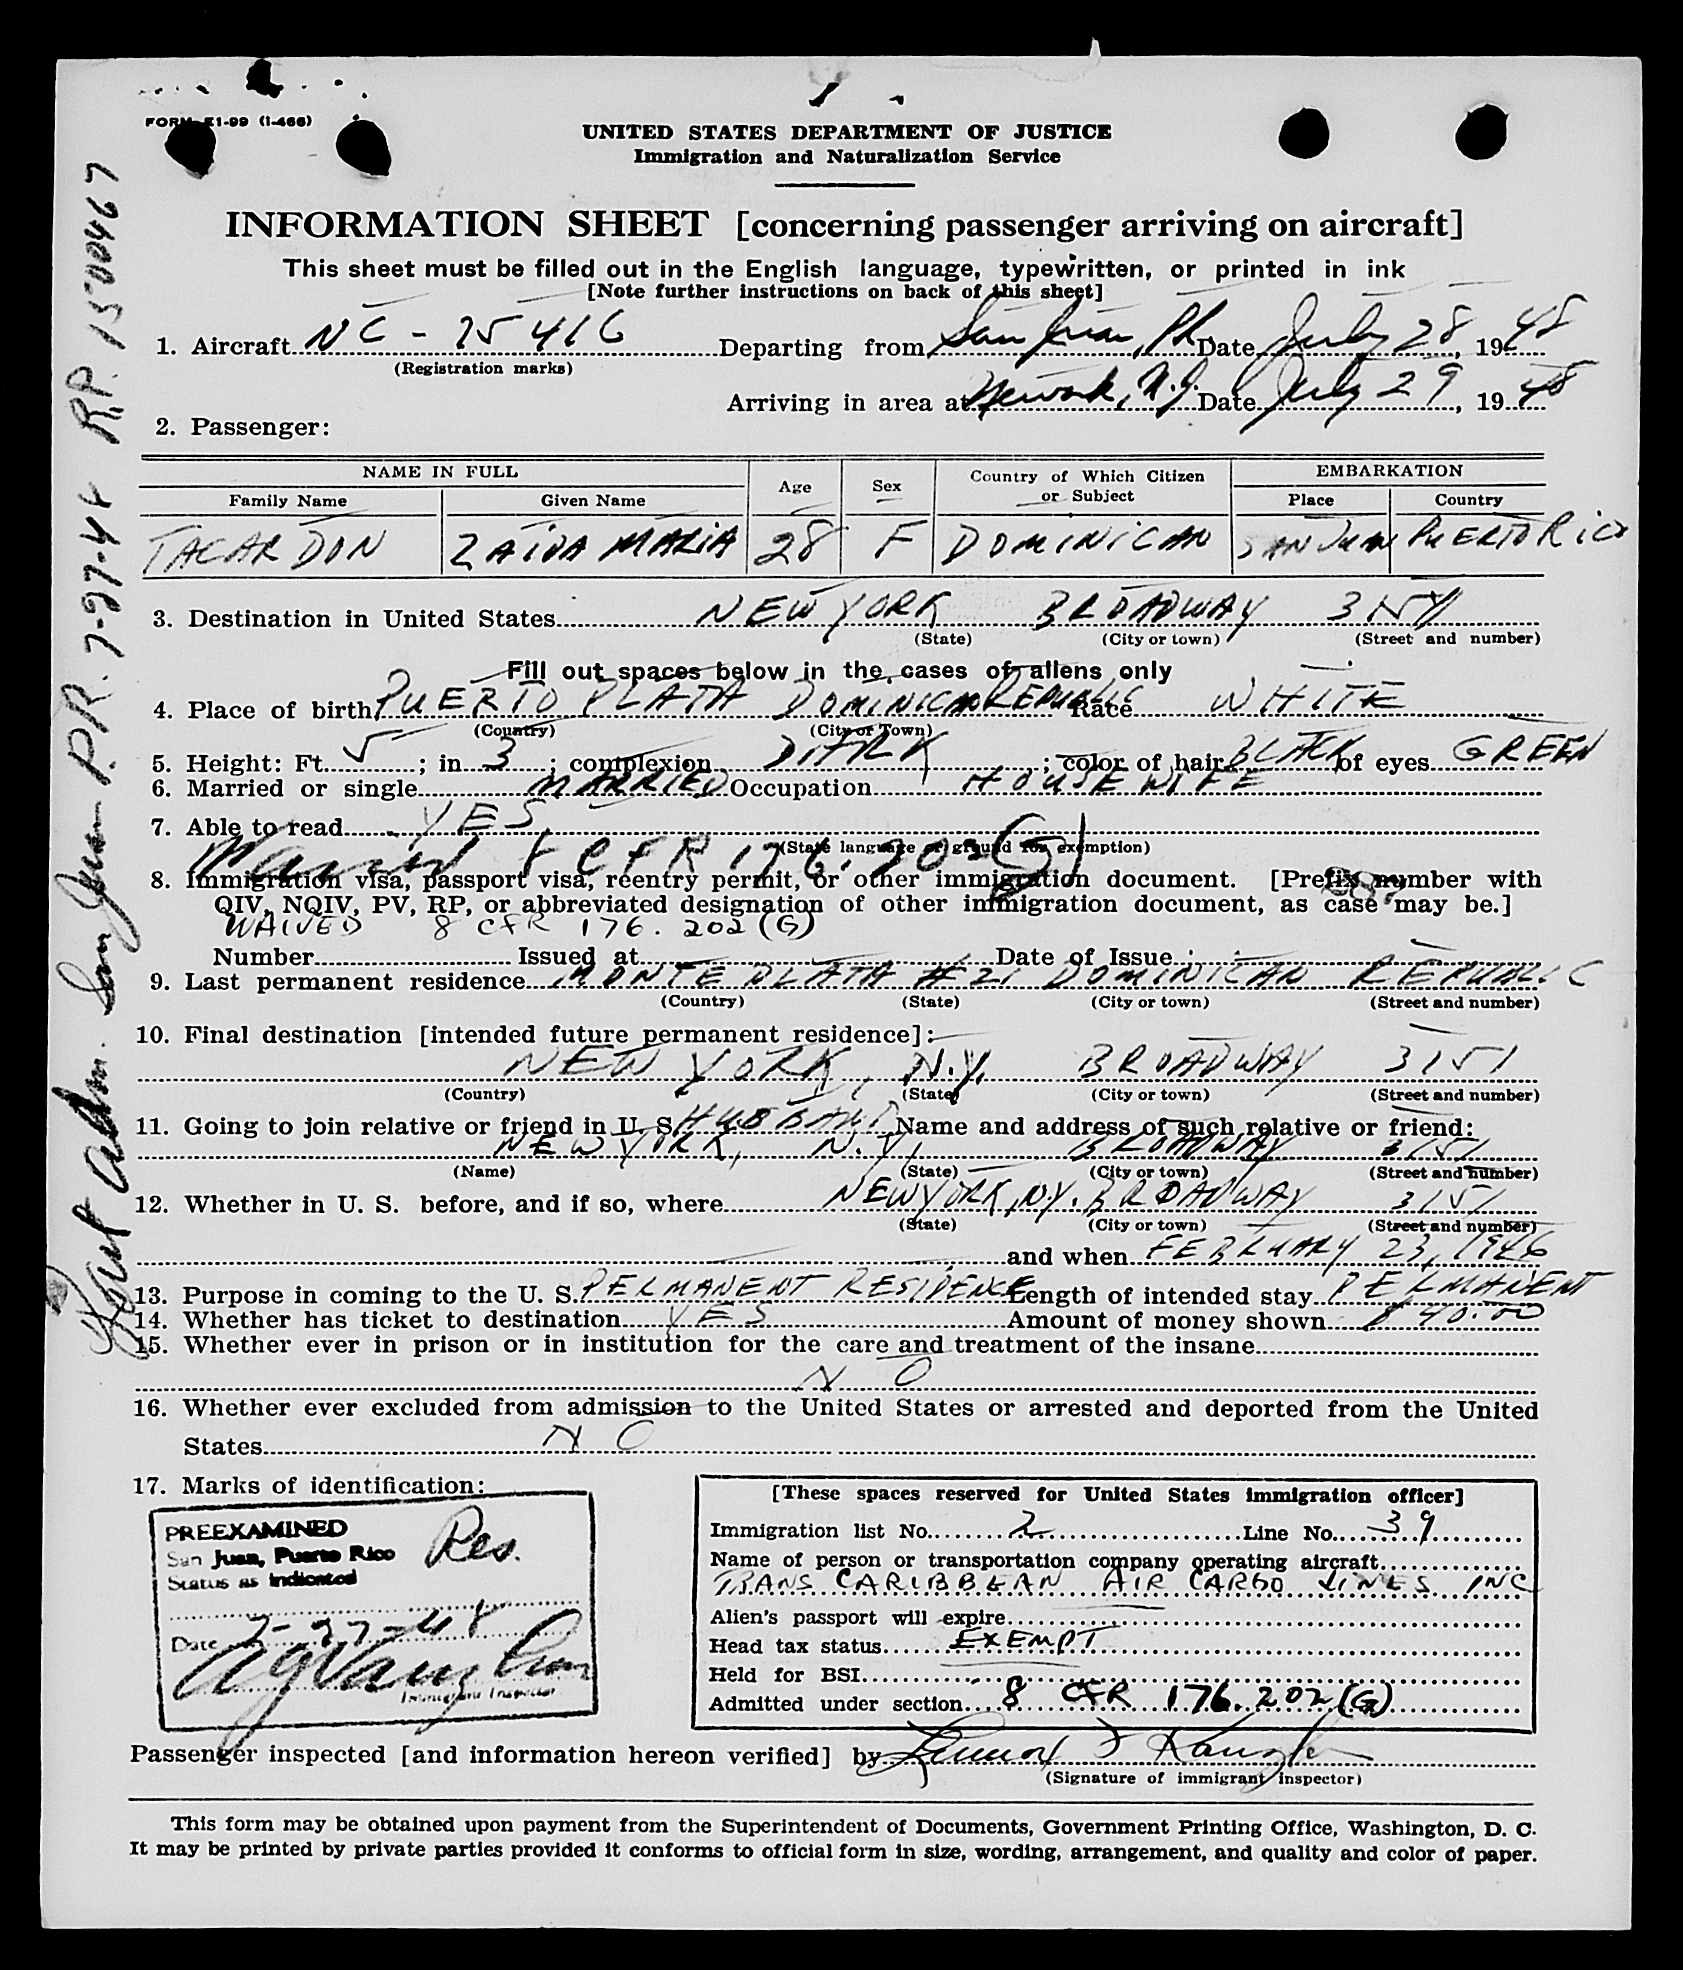 FORM I-99 (1-466)
UNITED STATES DEPARTMENT OF JUSTICE
Immigration and Naturalization Service
INFORMATION SHEET [concerning passenger arriving on aircraft]
This sheet must be filled out in the English language, typewritten, or printed in ink
[Note further instructions on back of this sheet]
1. Aircraft NC-75416 Departing from San Juan, P.R. Date July 28, 1948
(Registration marks)
Arriving in area at Newark, N.J. Date July 29, 1948
2. Passenger:
NAME IN FULL Age Sex Country of Which Citizen or Subject EMBARKATION
Family Name Given Name Place Country
TACARDON ZAIDA MARIA 28 F DOMINICAN SAN JUAN PUERTO RICO
3. Destination in United States NEW YORK BROADWAY 3151
(State) (City or town) (Street and number)
Fill out spaces below in the cases of aliens only
4. Place of birth PUERTO PLATA DOMINICAN REPUBLIC Race WHITE
(Country) (City or Town)
5. Height: Ft. 5; in. 3; complexion DARK; color of hair BLACK of eyes GREEN
6. Married or single MARRIED Occupation HOUSEWIFE
7. Able to read YES
(State language or ground for exemption)
Waived 8 CFR 176.202(G)
8. Immigration visa, passport visa, reentry permit, or other immigration document. [Prefix number with
QIV, NQIV, PV, RP, or abbreviated designation of other immigration document, as case may be.]
WAIVED 8 CFR 176.202(G)
Number Issued at Date of Issue
9. Last permanent residence MONTE PLATA #21 DOMINICAN REPUBLIC
(Country) (State) (City or town) (Street and number)
10. Final destination [intended future permanent residece]:
NEW YORK, N.Y. BROADWAY 3151
(Country) (State) (City or town) (Street and number)
11. Going to join relative or friend in U. S. HUSBAND Name and address of such relative or friend:
NEW YORK, N.Y. BROADWAY 3151
(Name) (State) (City or town) (Street and number)
12. Whether in U. S. before, and if so, where NEW YORK, N.Y. BROADWAY 3151
(State) (City or town) (Street and number)
and when FEBRUARY 23, 1946
13. Purpose in coming to the U. S. PERMANENT RESIDENCE Length of intended stay PERMANENT
14. Whether has ticket to destination YES Amount of money shown $40.00
15. Whether ever in prison or in institution for the care and treatment of the insane
NO
16. Whether ever excluded from admission to the United States or arrested and deported from the United
States NO
17. Marks of identification:
PREEXAMINED Res.
San Juan, Puerto Rico
Status as Indicated
Date 7-27-48
Immigrant Inspector
[These spaces reserved for United States immigration officer]
Immigration list No. 2 Line No. 39
Name of person or transportation company operating aircraft
TRANS CARIBBEAN AIR CARGO LINES INC
Alien's passport will expire
Head tax status EXEMPT
Held for BSI
Admitted under section 8 CFR 176.202(G)
Passenger inspected [and information hereon verified] by
(Signature of immigrant inspector)
This form may be obtained upon payment from the Superintendent of Documents, Government Printing Office, Washington, D. C.
It may be printed by private parties provided it conforms to official form in size, wording, arrangement, and quality and color of paper.
adm. San Juan P.R. 7-27-48 R.P. 1500467